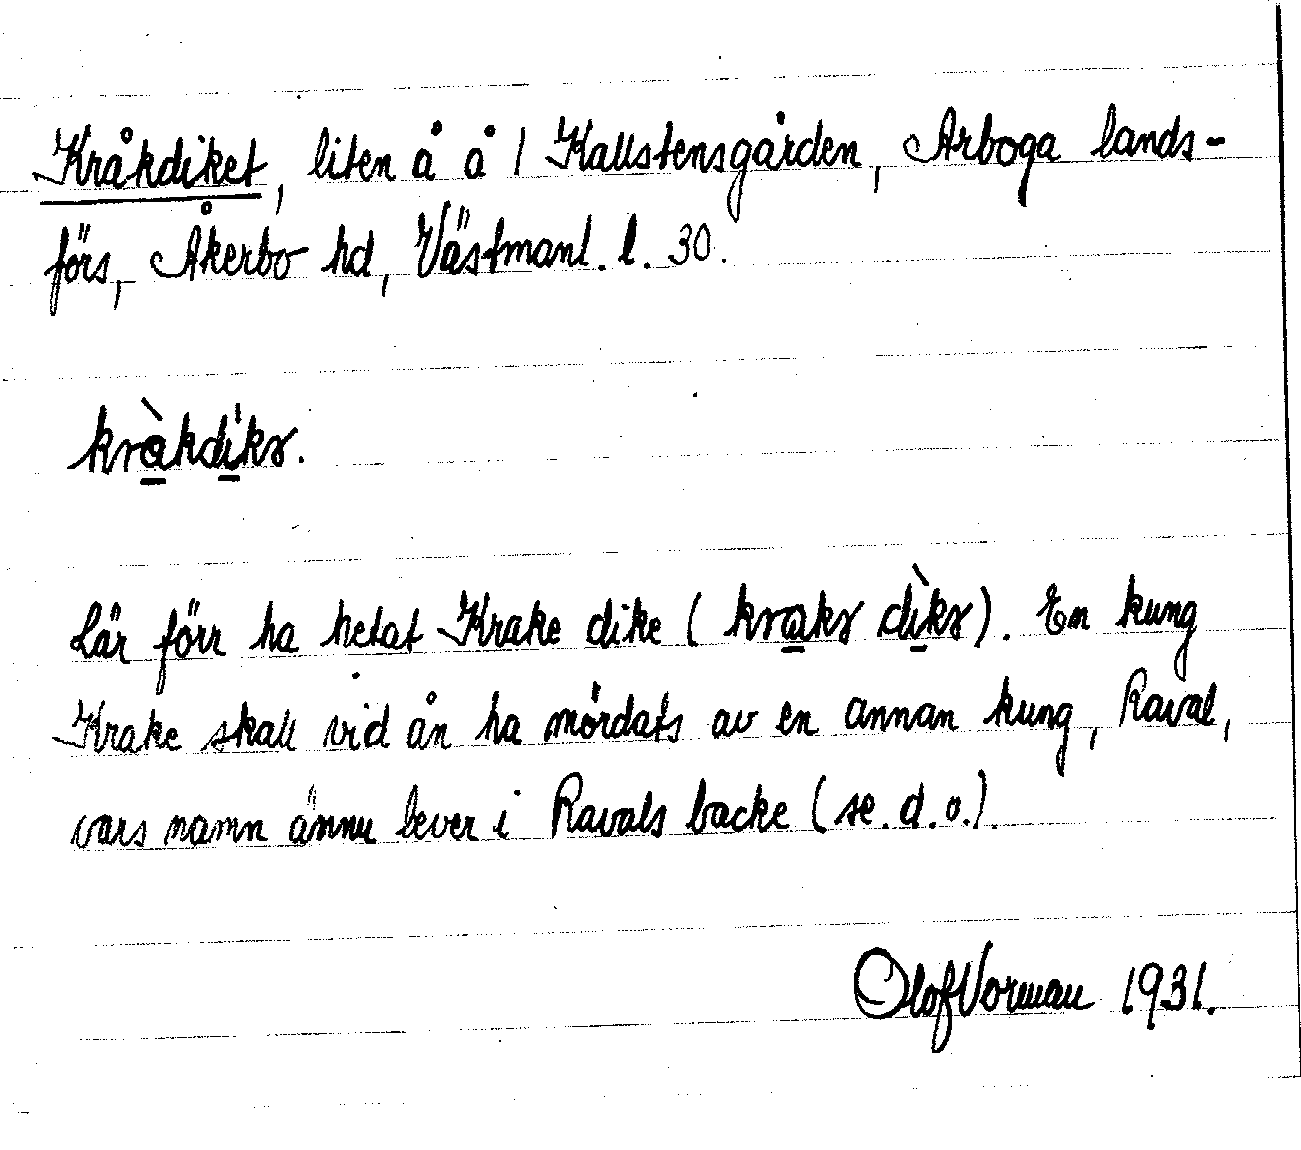 Kråkdiket, liten å å 1 Kallstensgården, Arboga lands-
förs, Åkerbo hd, Västmanl. l. 30.
kràkdikr.
Lär förr ha hetat Krake dike (krakr dìkr). En kung
Krake skall vid ån ha mördats av en annan kung, Raval,
vars namn ännu lever i Ravals backe (se. d. o.).
Olof Vorman 1931.